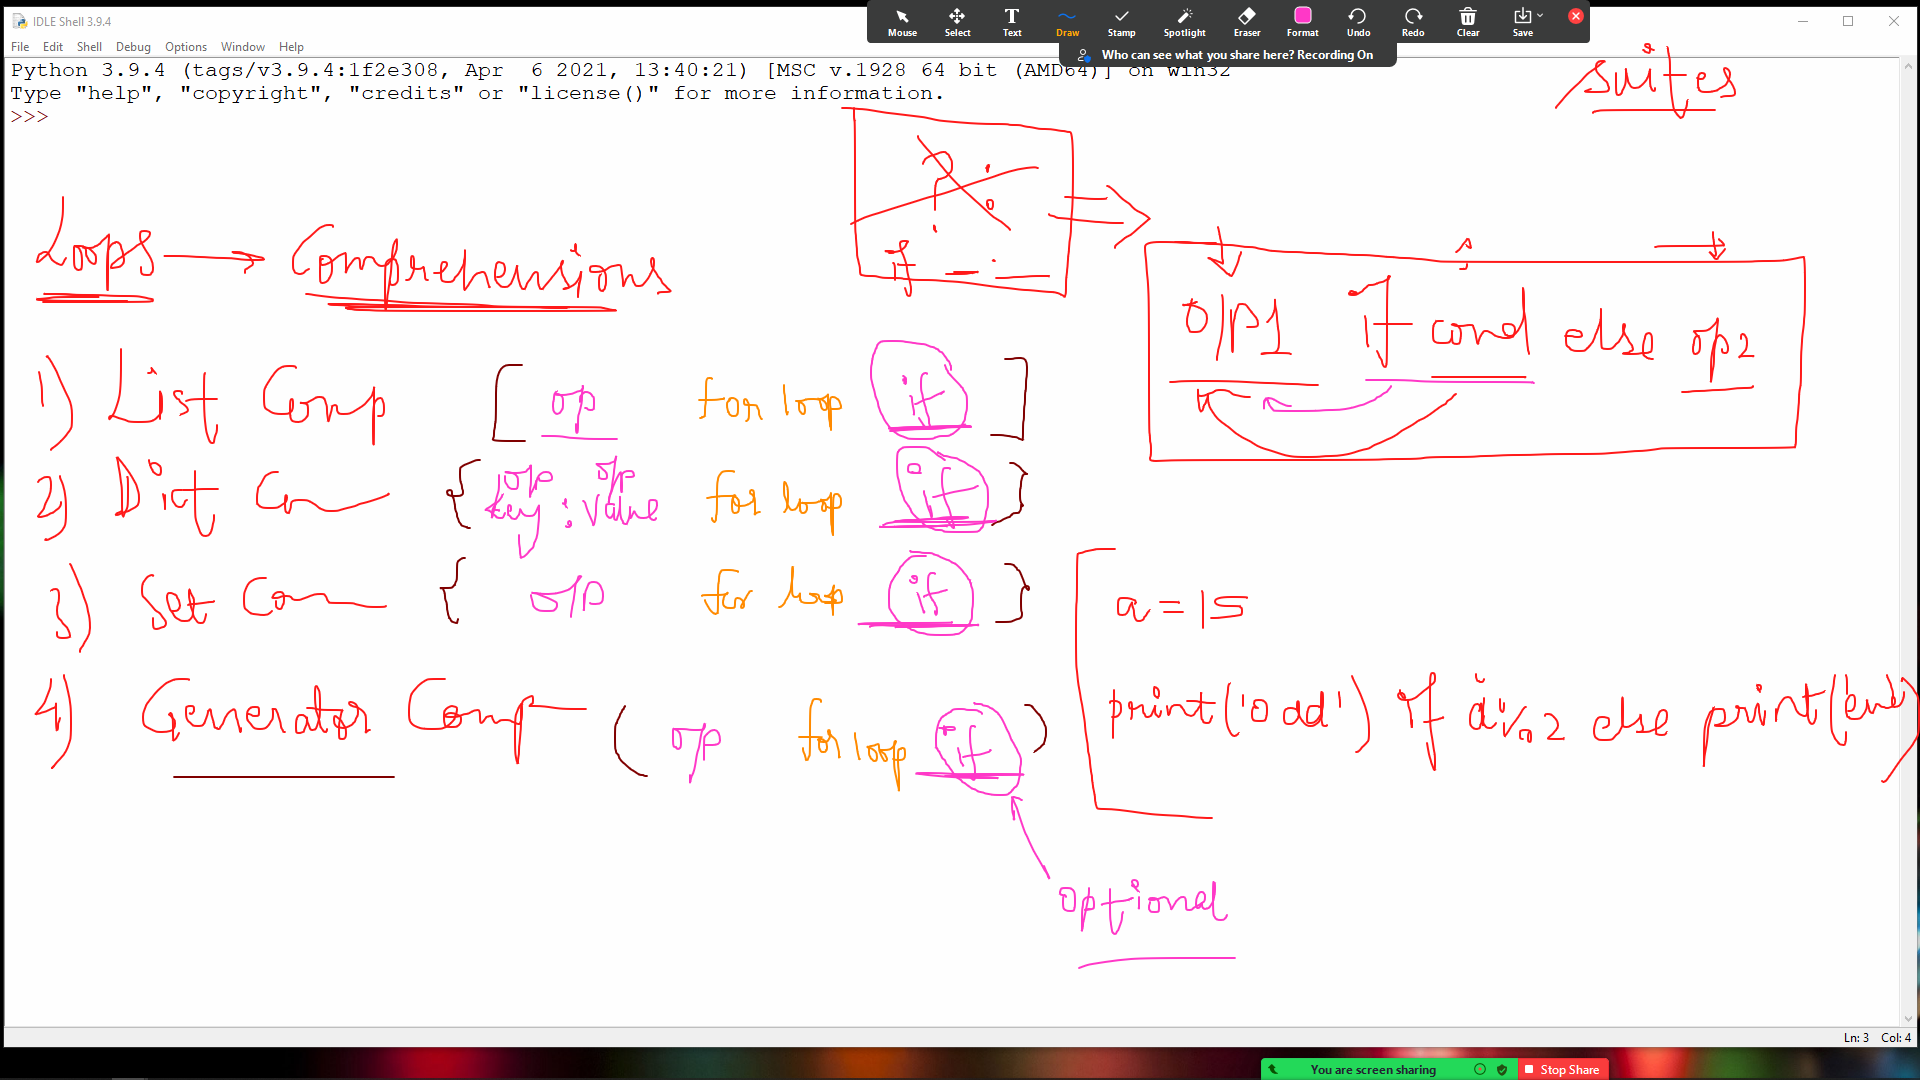 IDLE Shell 3.9.4
File Edit Shell Debug Options Window Help
Mouse Select Text Draw Stamp Spotlight Eraser Format Undo Redo Clear Save
Who can see what you share here? Recording On
Python 3.9.4 (tags/v3.9.4:1f2e308, Apr 6 2021, 13:40:21) [MSC v.1928 64 bit (AMD64)] on win32
Type "help", "copyright", "credits" or "license()" for more information.
>>>
suites
? :
if _ : __
Loops → Comprehensions
o/p1 if cond else op2
1) List Comp [ op for loop if ]
2) Dict Com { op op
key : value for loop if }
3) Set Com { o/p for loop if }
a = 15
4) Generator Comp ( o/p for loop if )
print('odd') if a%2 else print('even')
optional
Ln: 3 Col: 4
You are screen sharing Stop Share